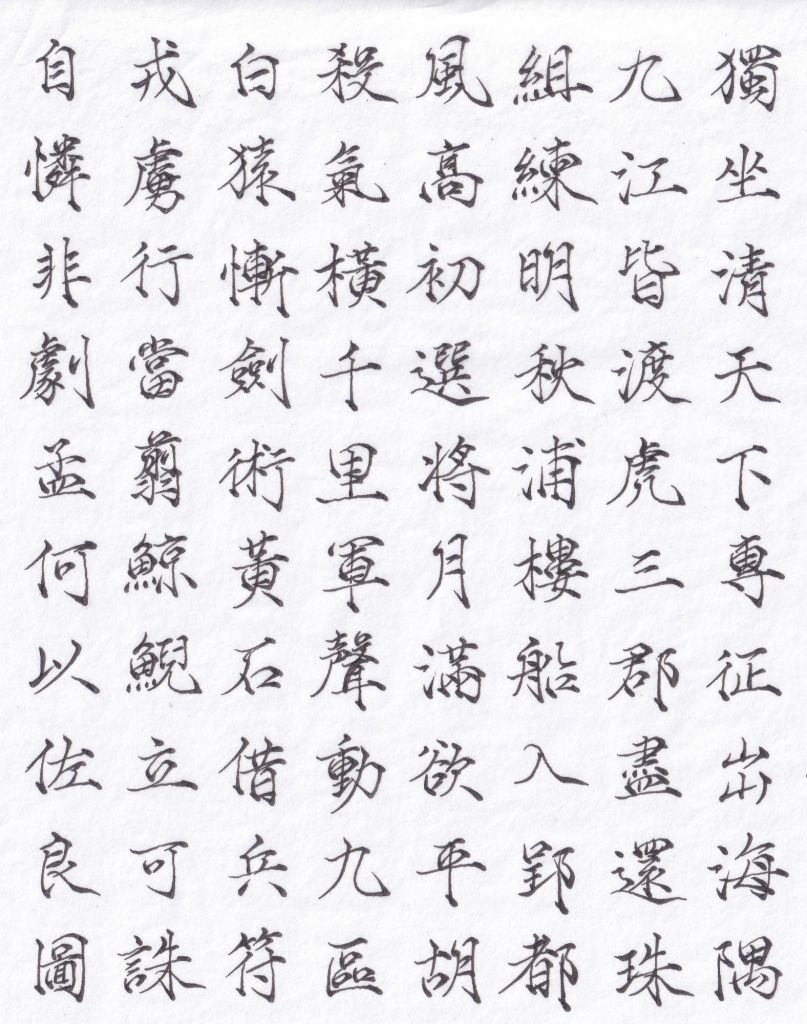 獨坐清天下專征出海隅
九江皆渡虎三郡盡還珠
組練明秋浦樓船入郢都
風高初選將月滿欲平胡
殺氣橫千里軍聲動九區
白猿慚劍術黃石借兵符
戎虜行當翦鯨鯢立可誅
自憐非劇孟何以佐良圖